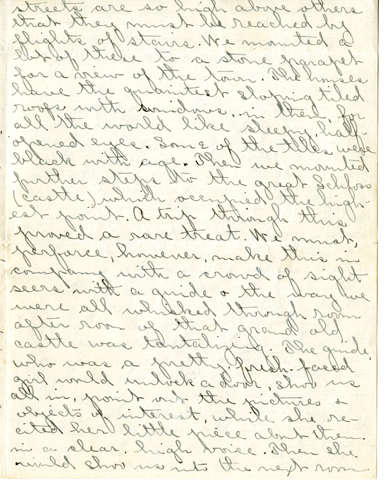 streets are so high above others
that they must be reached by
flights of stairs. We mounted a
lot of these to a stone parapet
for a view of the town. The houses
have the quaintest sloping tiled
roofs with windows, in them, for
all the world like sleepy, half-
opened eyes. Some of the tiles were
black with age. Then we mounted
further steps to the great Schloss
(castle,) which occupied the high-
est point. A trip through this
proved a rare treat. We must,
perforce, however, make this in
company with a crowd of sight
seers with a guide & the way we
were all whisked through room
after room of that grand old
castle was tantalizing. The guide,
who was a pretty, fresh-faced
girl would unlock a door, shoo us
all in, point out the pictures &
objects of interest, while she re-
cited her little piece about them.
in a clear high voice. Then she
would shoo us into the next room